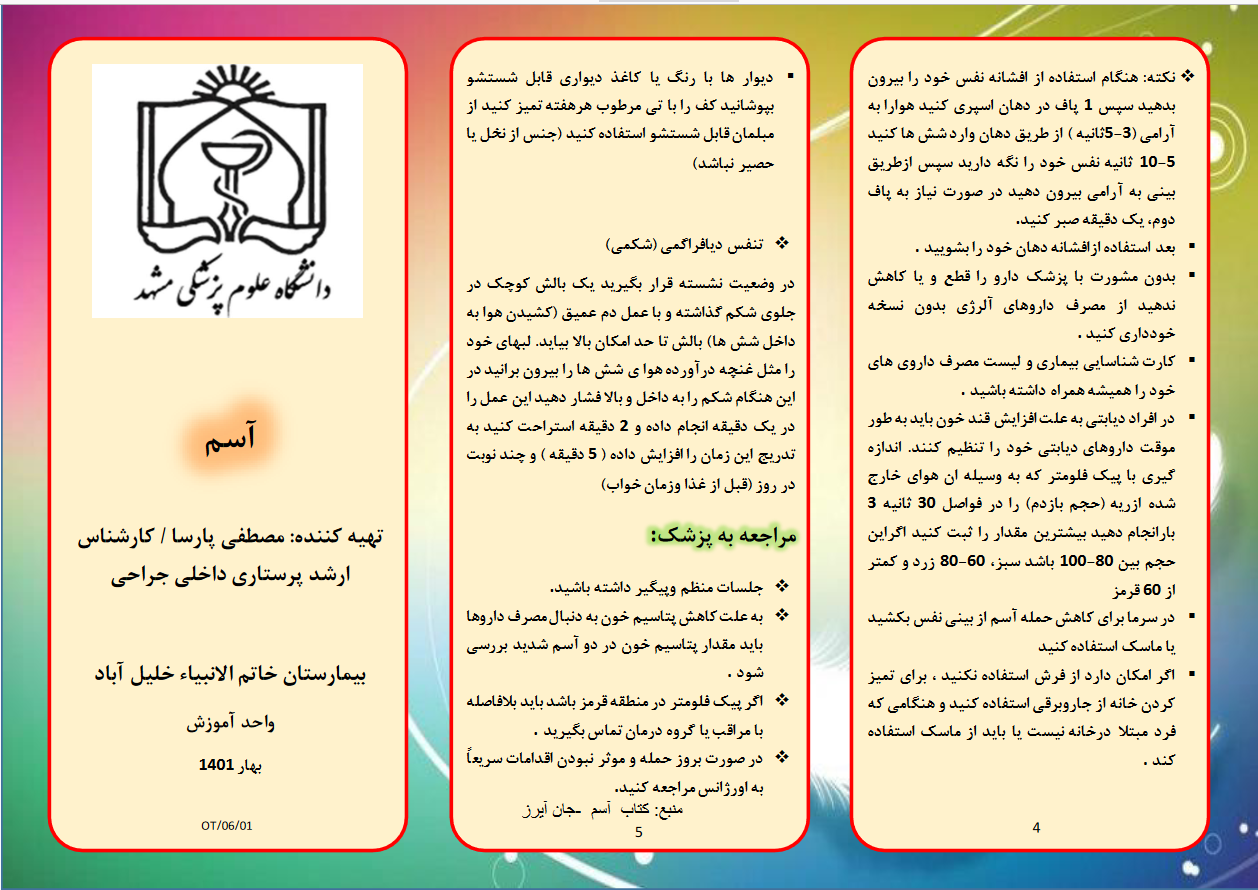 ❖ نکته: هنگام استفاده از افشانه نفس خود را بیرون
بدهید سپس 1 پاف در دهان اسپری کنید هوارا به
آرامی (3-5ثانیه ) از طریق دهان وارد شش ها کنید
5-10 ثانیه نفس خود را نگه دارید سپس ازطریق
بینی به آرامی بیرون دهید در صورت نیاز به پاف
دوم، یک دقیقه صبر کنید.
▪ بعد استفاده ازافشانه دهان خود را بشویید .
▪ بدون مشورت با پزشک دارو را قطع و یا کاهش
ندهید از مصرف داروهای آلرژی بدون نسخه
خودداری کنید .
▪ کارت شناسایی بیماری و لیست مصرف داروی های
خود را همیشه همراه داشته باشید .
▪ در افراد دیابتی به علت افزایش قند خون باید به طور
موقت داروهای دیابتی خود را تنظیم کنند. اندازه
گیری با پیک فلومتر که به وسیله ان هوای خارج
شده ازریه (حجم بازدم) را در فواصل 30 ثانیه 3
بارانجام دهید بیشترین مقدار را ثبت کنید اگراین
حجم بین 80-100 باشد سبز، 60-80 زرد و کمتر
از 60 قرمز
▪ در سرما برای کاهش حمله آسم از بینی نفس بکشید
یا ماسک استفاده کنید
▪ اگر امکان دارد از فرش استفاده نکنید ، برای تمیز
کردن خانه از جاروبرقی استفاده کنید و هنگامی که
فرد مبتلا درخانه نیست یا باید از ماسک استفاده
کند .
4
▪ دیوار ها با رنگ یا کاغذ دیواری قابل شستشو
بپوشانید کف را با تی مرطوب هرهفته تمیز کنید از
مبلمان قابل شستشو استفاده کنید (جنس از نخل یا
حصیر نباشد)
❖ تنفس دیافراگمی (شکمی)
در وضعیت نشسته قرار بگیرید یک بالش کوچک در
جلوی شکم گذاشته و با عمل دم عمیق (کشیدن هوا به
داخل شش ها) بالش تا حد امکان بالا بیاید. لبهای خود
را مثل غنچه درآورده هوا ی شش ها را بیرون برانید در
این هنگام شکم را به داخل و بالا فشار دهید این عمل را
در یک دقیقه انجام داده و 2 دقیقه استراحت کنید به
تدریج این زمان را افزایش داده ( 5 دقیقه ) و چند نوبت
در روز (قبل از غذا وزمان خواب)
مراجعه به پزشک:
❖ جلسات منظم وپیگیر داشته باشید.
❖ به علت کاهش پتاسیم خون به دنبال مصرف داروها
باید مقدار پتاسیم خون در دو آسم شدید بررسی
شود .
❖ اگر پیک فلومتر در منطقه قرمز باشد باید بلافاصله
با مراقب یا گروه درمان تماس بگیرید .
❖ در صورت بروز حمله و موثر نبودن اقدامات سریعاً
به اورژانس مراجعه کنید.
منبع: کتاب آسم -جان آیرز
5
دانشگاه علوم پزشکی مشهد
آسم
تهیه کننده: مصطفی پارسا / کارشناس
ارشد پرستاری داخلی جراحی
بیمارستان خاتم الانبیاء خلیل آباد
واحد آموزش
بهار 1401
OT/06/01